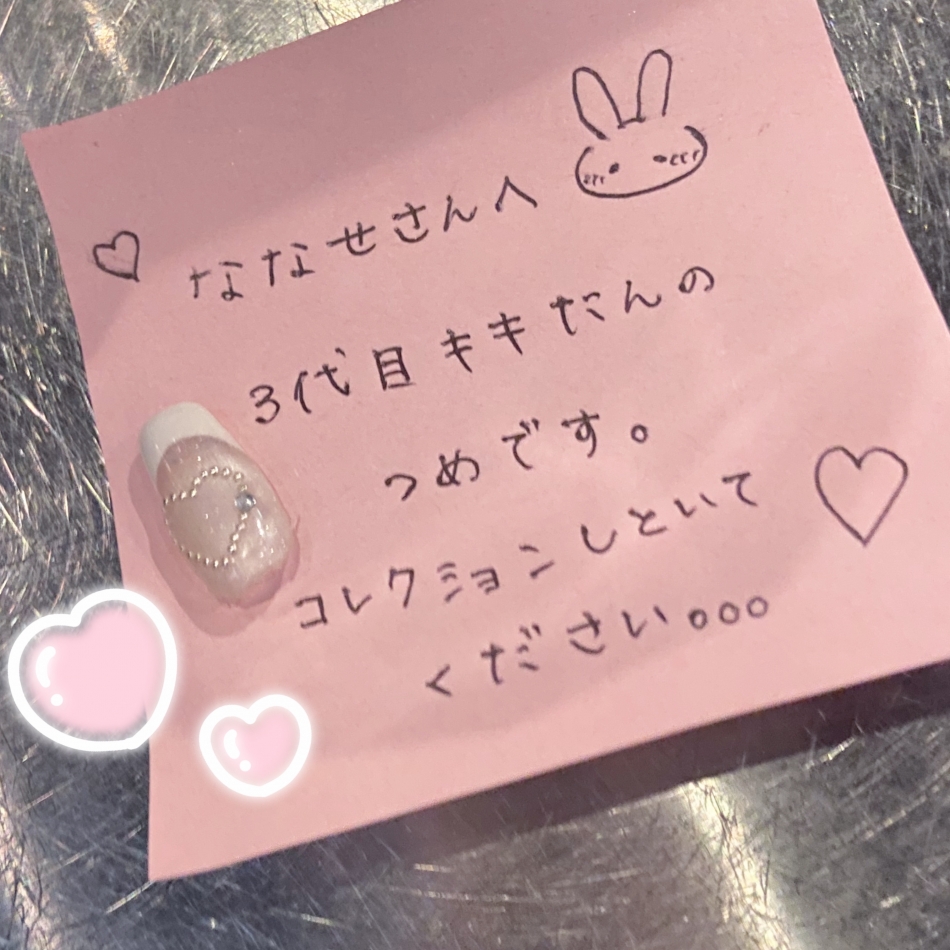 ななせさんへ
3代目キキたんの
つめです。
コレクションしといて
ください。。。